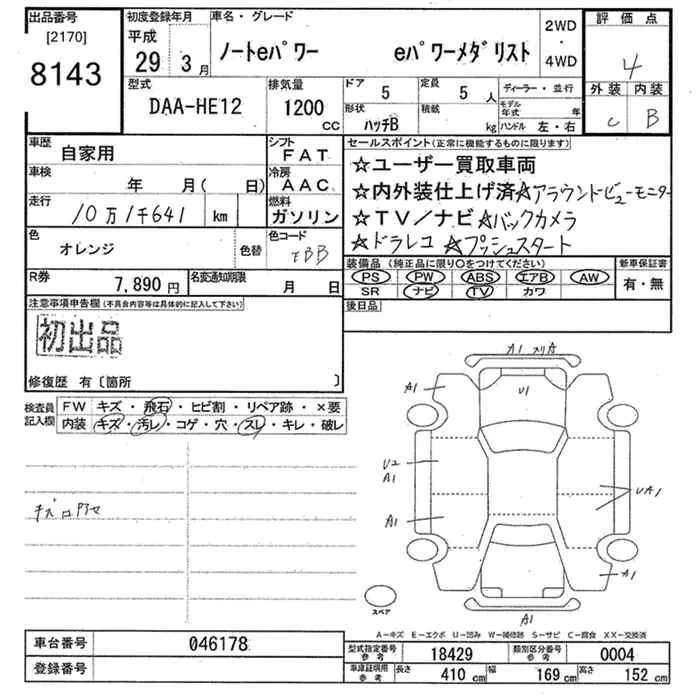 出品番号 初度登録年月 車名・グレード 2WD・4WD 評価点
[2170] 8143
平成 29 3月 ノートeパワー eパワーメダリスト 4
型式 排気量 ドア 5 定員 5人 ディーラー・並行 外装 内装
DAA-HE12 1200cc 形状 ハッチB 積載 kg モデル年式 年 ハンドル 左・右 C B
車歴 自家用 シフト FAT セールスポイント(正常に機能するものに限ります)
車検 年 月(日) 冷房 AAC ☆ユーザー買取車両
走行 10万1千641 km 燃料 ガソリン ☆内外装仕上げ済☆アラウンドビューモニター
☆TV/ナビ☆バックカメラ
色 オレンジ 色替 色コード EBB ☆ドラレコ ☆プッシュスタート
R券 7,890円 名変通知期限 月 日 装備品(純正品に限り○をつけてください) 新車保証書
PS PW ABS エアB AW 有・無
SR ナビ TV カワ
注意事項申告欄(不具合内容等は具体的に記入して下さい) 後日品
初出品
修復歴 有〔箇所 〕
検査員記入欄 FW キズ・飛石・ヒビ割・リペア跡・×要
内装 キズ・汚レ・コゲ・穴・スレ・キレ・破レ
A1
A1
U1
U2
A1
UA1
A1
A1
A1
スペア
A-キズ E-エクボ U-凹み W-補修跡 S-サビ C-腐食 XX-交換済
車台番号 046178 型式指定番号 参考 18429 類別区分番号 参考 0004
登録番号 車庫証明用 参考 長さ 410 cm 幅 169 cm 高さ 152 cm